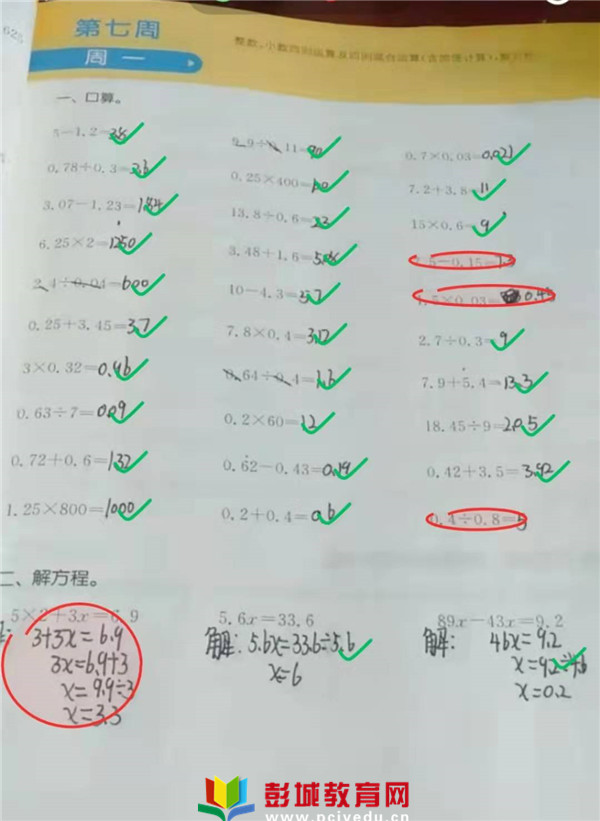 625
第七周
周一
整数、小数四则运算及四则混合运算(含简便计算),解方程
一、口算。
0.7×0.03=0.021
0.25×400=100
7.2+3.8=11
3.07-1.23=1.84
13.8÷0.6=23
15×0.6=9
6.25×2=1250
3.48+1.6=5.08
2.4÷0.04=600
10-4.3=5.7
0.25+3.45=3.7
7.8×0.4=3.12
2.7÷0.3=9
3×0.32=0.96
0.64÷0.4=1.6
7.9+5.4=13.3
0.63÷7=0.09
0.2×60=12
18.45÷9=2.05
0.72+0.6=1.32
0.62-0.43=0.19
0.42+3.5=3.92
1.25×800=1000
0.2+0.4=0.6
0.4÷0.8=5
二、解方程。
5×2+3x=6.9
5.6x=33.6
89x-43x=9.2
3+3x=6.9
解:5.6x=33.6÷5.6
解:46x=9.2
3x=6.9+3
x=6
x=9.2÷46
x=9.9÷3
x=0.2
x=3.3
彭城教育网
www.pcjyedu.cn